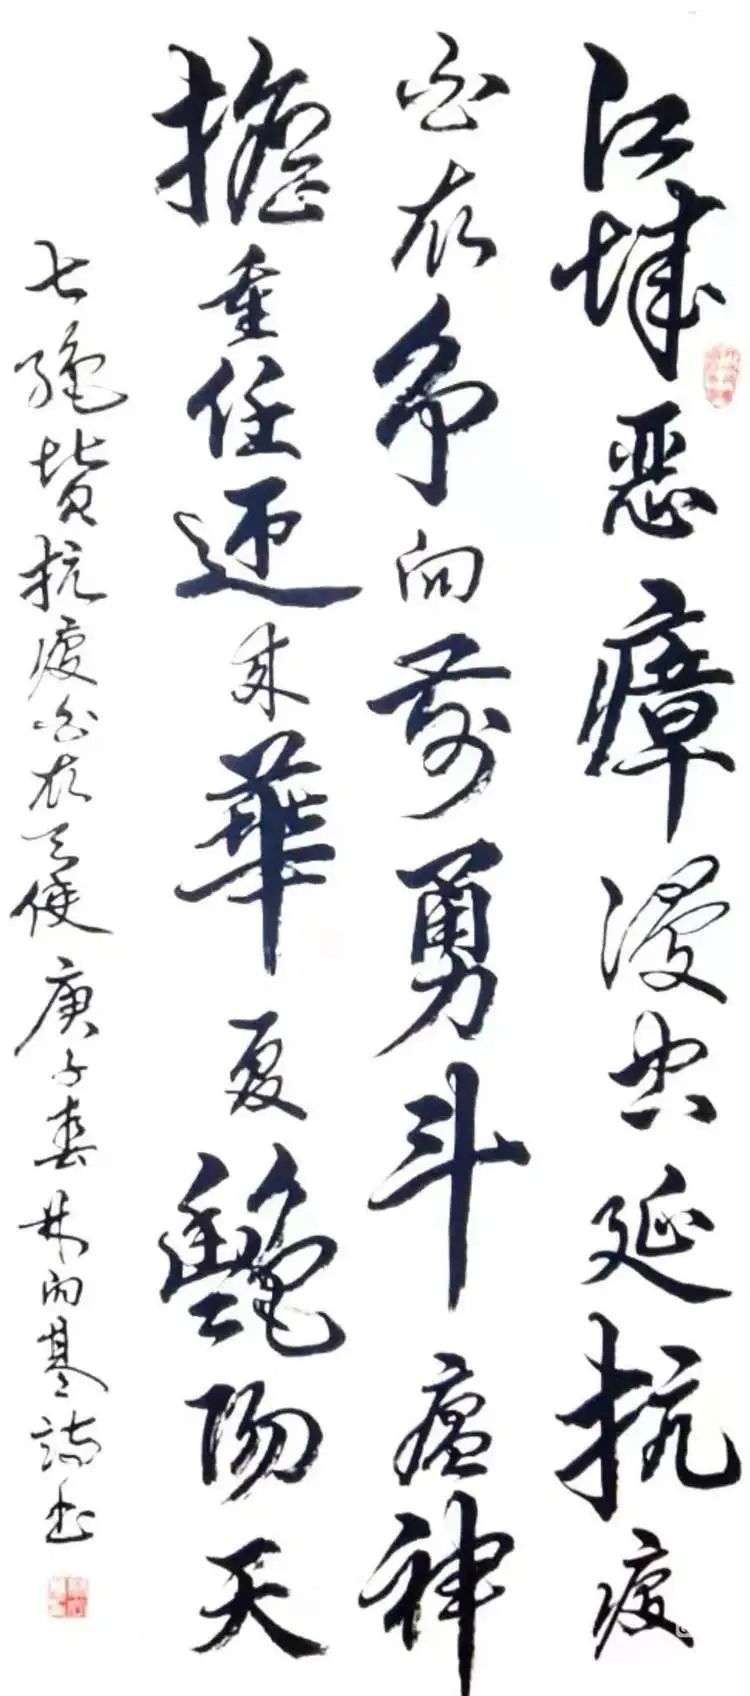 江城恶瘴漫延抗疫
白衣争向前勇斗瘟神
擔重任迎来華夏艷阳天
七绝赞抗疫白衣天使庚子春林向诗书